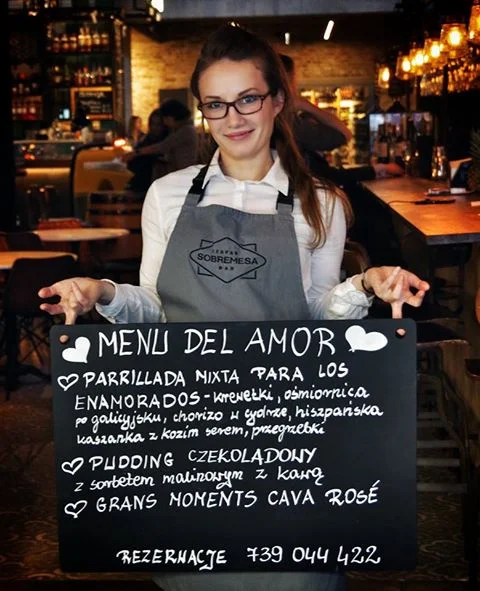 TAPAS
SOBREMESA
BAR
MENU DEL AMOR
PARRILLADA MIXTA PARA LOS
ENAMORADOS - krewetki, ośmiornica
po galicyjsku, chorizo w cydrze, hiszpańska
kaszanka z kozim serem, przegrzebki
PUDDING CZEKOLADOWY
z sorbetem malinowym z kawą
GRANS MOMENTS CAVA ROSÉ
REZERWACJE 739 044 422